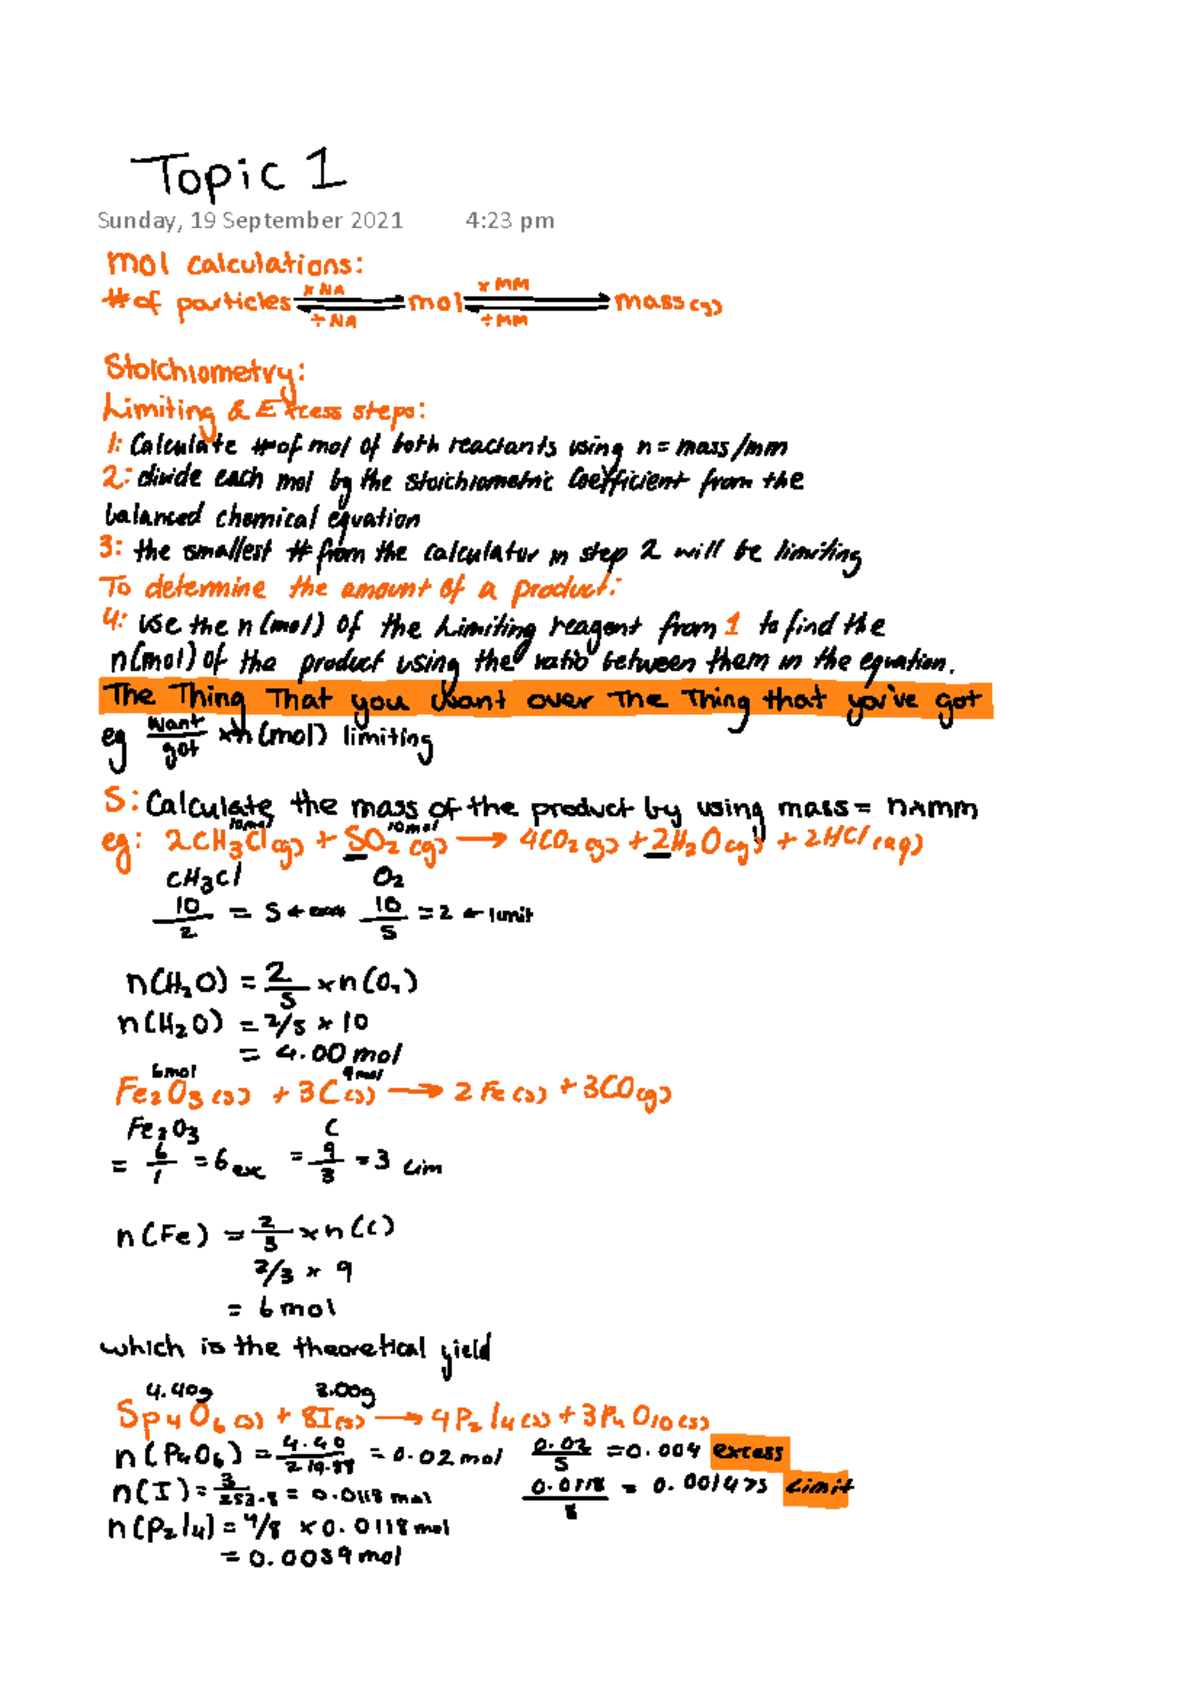 Topic 1
Sunday, 19 September 2021 4:23 pm
mol calculations:
# of particles x NA ÷ NA mol x MM ÷ MM mass (g)
Stoichiometry:
Limiting & Excess steps:
1: Calculate # of mol of both reactants using n = mass/mm
2: divide each mol by the stoichiometric coefficient from the
balanced chemical equation
3: the smallest # from the calculator in step 2 will be limiting
To determine the amount of a product:
4: use the n (mol) of the limiting reagent from 1 to find the
n(mol) of the product using the ratio between them in the equation.
The Thing That you want over The Thing that you've got
eg want/got x n (mol) limiting
5: Calculate the mass of the product by using mass = n x mm
10mol 10mol
eg: 2CH₃Cl(g) + 5O₂(g) → 4CO₂(g) + 2H₂O(g) + 2HCl(aq)
CH₃Cl O₂
10/2 = 5 ← 10/5 = 2 ← limit
n(H₂O) = 2/5 x n(O₂)
n(H₂O) = 2/5 x 10
= 4.00 mol
6mol 9mol
Fe₂O₃(s) + 3C(s) → 2Fe(s) + 3CO(g)
Fe₂O₃ C
= 6/1 = 6 exc = 9/3 = 3 Lim
n(Fe) = 2/3 x n(C)
2/3 x 9
= 6 mol
which is the theoretical yield
4.40g 3.00g
5p₄O₆(s) + 8I(s) → 4P₂I₄(s) + 3P₄O₁₀(s)
n(P₄O₆) = 4.40/219.88 = 0.02 mol 0.02/5 = 0.004 excess
n(I) = 3/253.8 = 0.0118 mol 0.0118/8 = 0.001475 Limit
n(P₂I₄) = 4/8 x 0.0118 mol
= 0.0059 mol